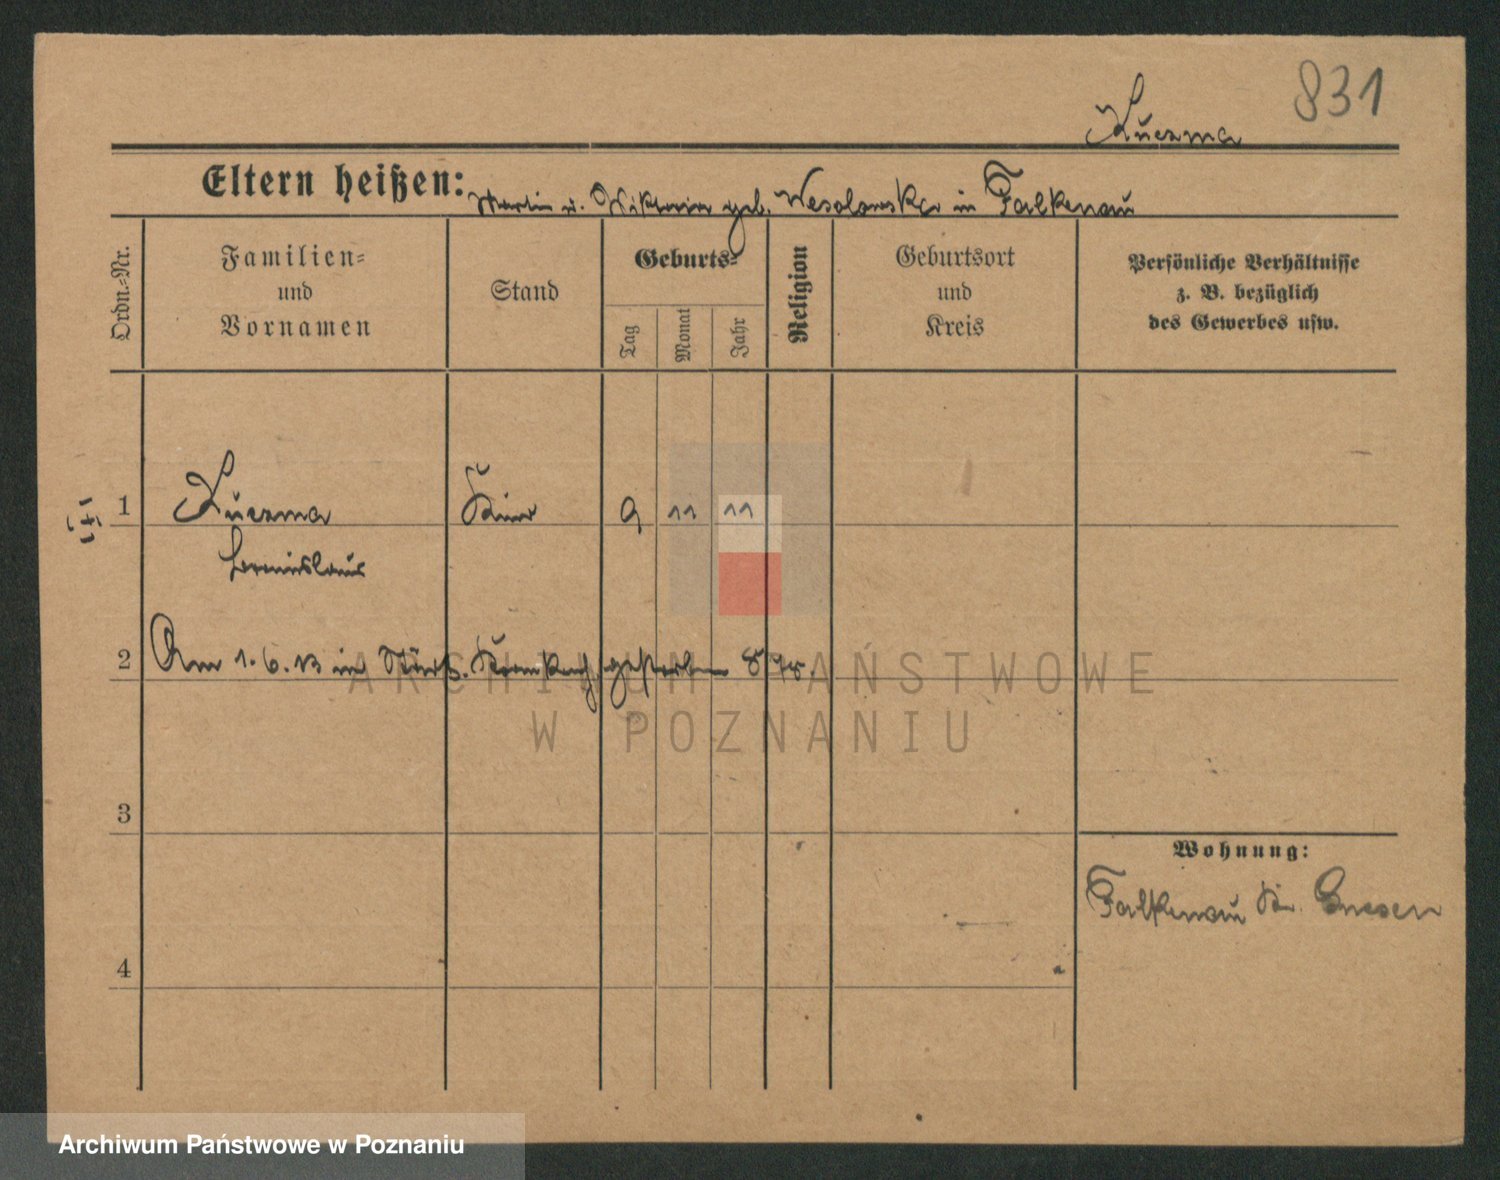 831
Kuczma
Eltern heißen: Martin u. Wiktoria geb. Wesolowska in Falkenau
Ordn.-Nr.
Familien-
und
Vornamen
Stand
Geburts-
Tag
Monat
Jahr
Religion
Geburtsort
und
Kreis
Persönliche Verhältnisse
z. B. bezüglich
des Gewerbes usw.
1 Kuczma
9 11 11
2 Am 1.6.13 im Städt. Krankenh. gestorben
3
Wohnung:
Falkenau Kr. Gnesen
4
ARCHIWUM PAŃSTWOWE
W POZNANIU
Archiwum Państwowe w Poznaniu